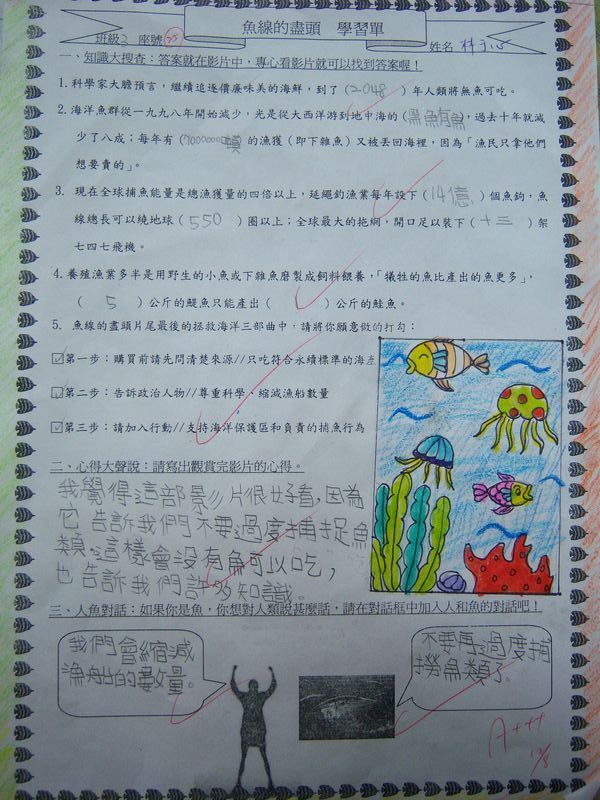 魚線的盡頭 學習單
班級 座號 姓名 林
一、知識大搜查：答案就在影片中，專心看影片就可以找到答案喔！
1.科學家大膽預言，繼續追逐價廉味美的海鮮，到了（2048）年人類將無魚可吃。
2.海洋魚群從一九九八年開始減少，光是從大西洋游到地中海的（黑鮪魚，過去十年就減
少了八成；每年有（7000000噸 的漁獲（即下雜魚）又被丟回海裡，因為「漁民只拿他們
想要賣的」。
3. 現在全球捕魚能量是總漁獲量的四倍以上，延繩釣漁業每年設下（14億）個魚鉤，魚
線總長可以繞地球（550）圈以上；全球最大的拖網，開口足以裝下（十三）架
七四七飛機。
4.養殖漁業多半是用野生的小魚或下雜魚磨製成飼料餵養，「犧牲的魚比產出的魚更多」，
（ 5 ）公斤的鯷魚只能產出（ ）公斤的鮭魚。
5. 魚線的盡頭片尾最後的拯救海洋三部曲中，請將你願意做的打勾：
☑第一步：購買前請先問清楚來源//只吃符合永續標準的海產
☑第二步：告訴政治人物//尊重科學、縮減漁船數量
☑第三步：請加入行動//支持海洋保護區和負責的捕魚行為
二、心得大聲說：請寫出觀賞完影片的心得。
我覺得這部影片很好看，因為
它告訴我們不要過度捕捉魚
類，這樣會沒有魚可以吃，
也告訴我們許多知識。
三、人魚對話：如果你是魚，你想對人類說甚麼話，請在對話框中加入人和魚的對話吧！
我們會縮減
漁船的數量。
不要再過度捕
撈魚類了。
A+++
12/8